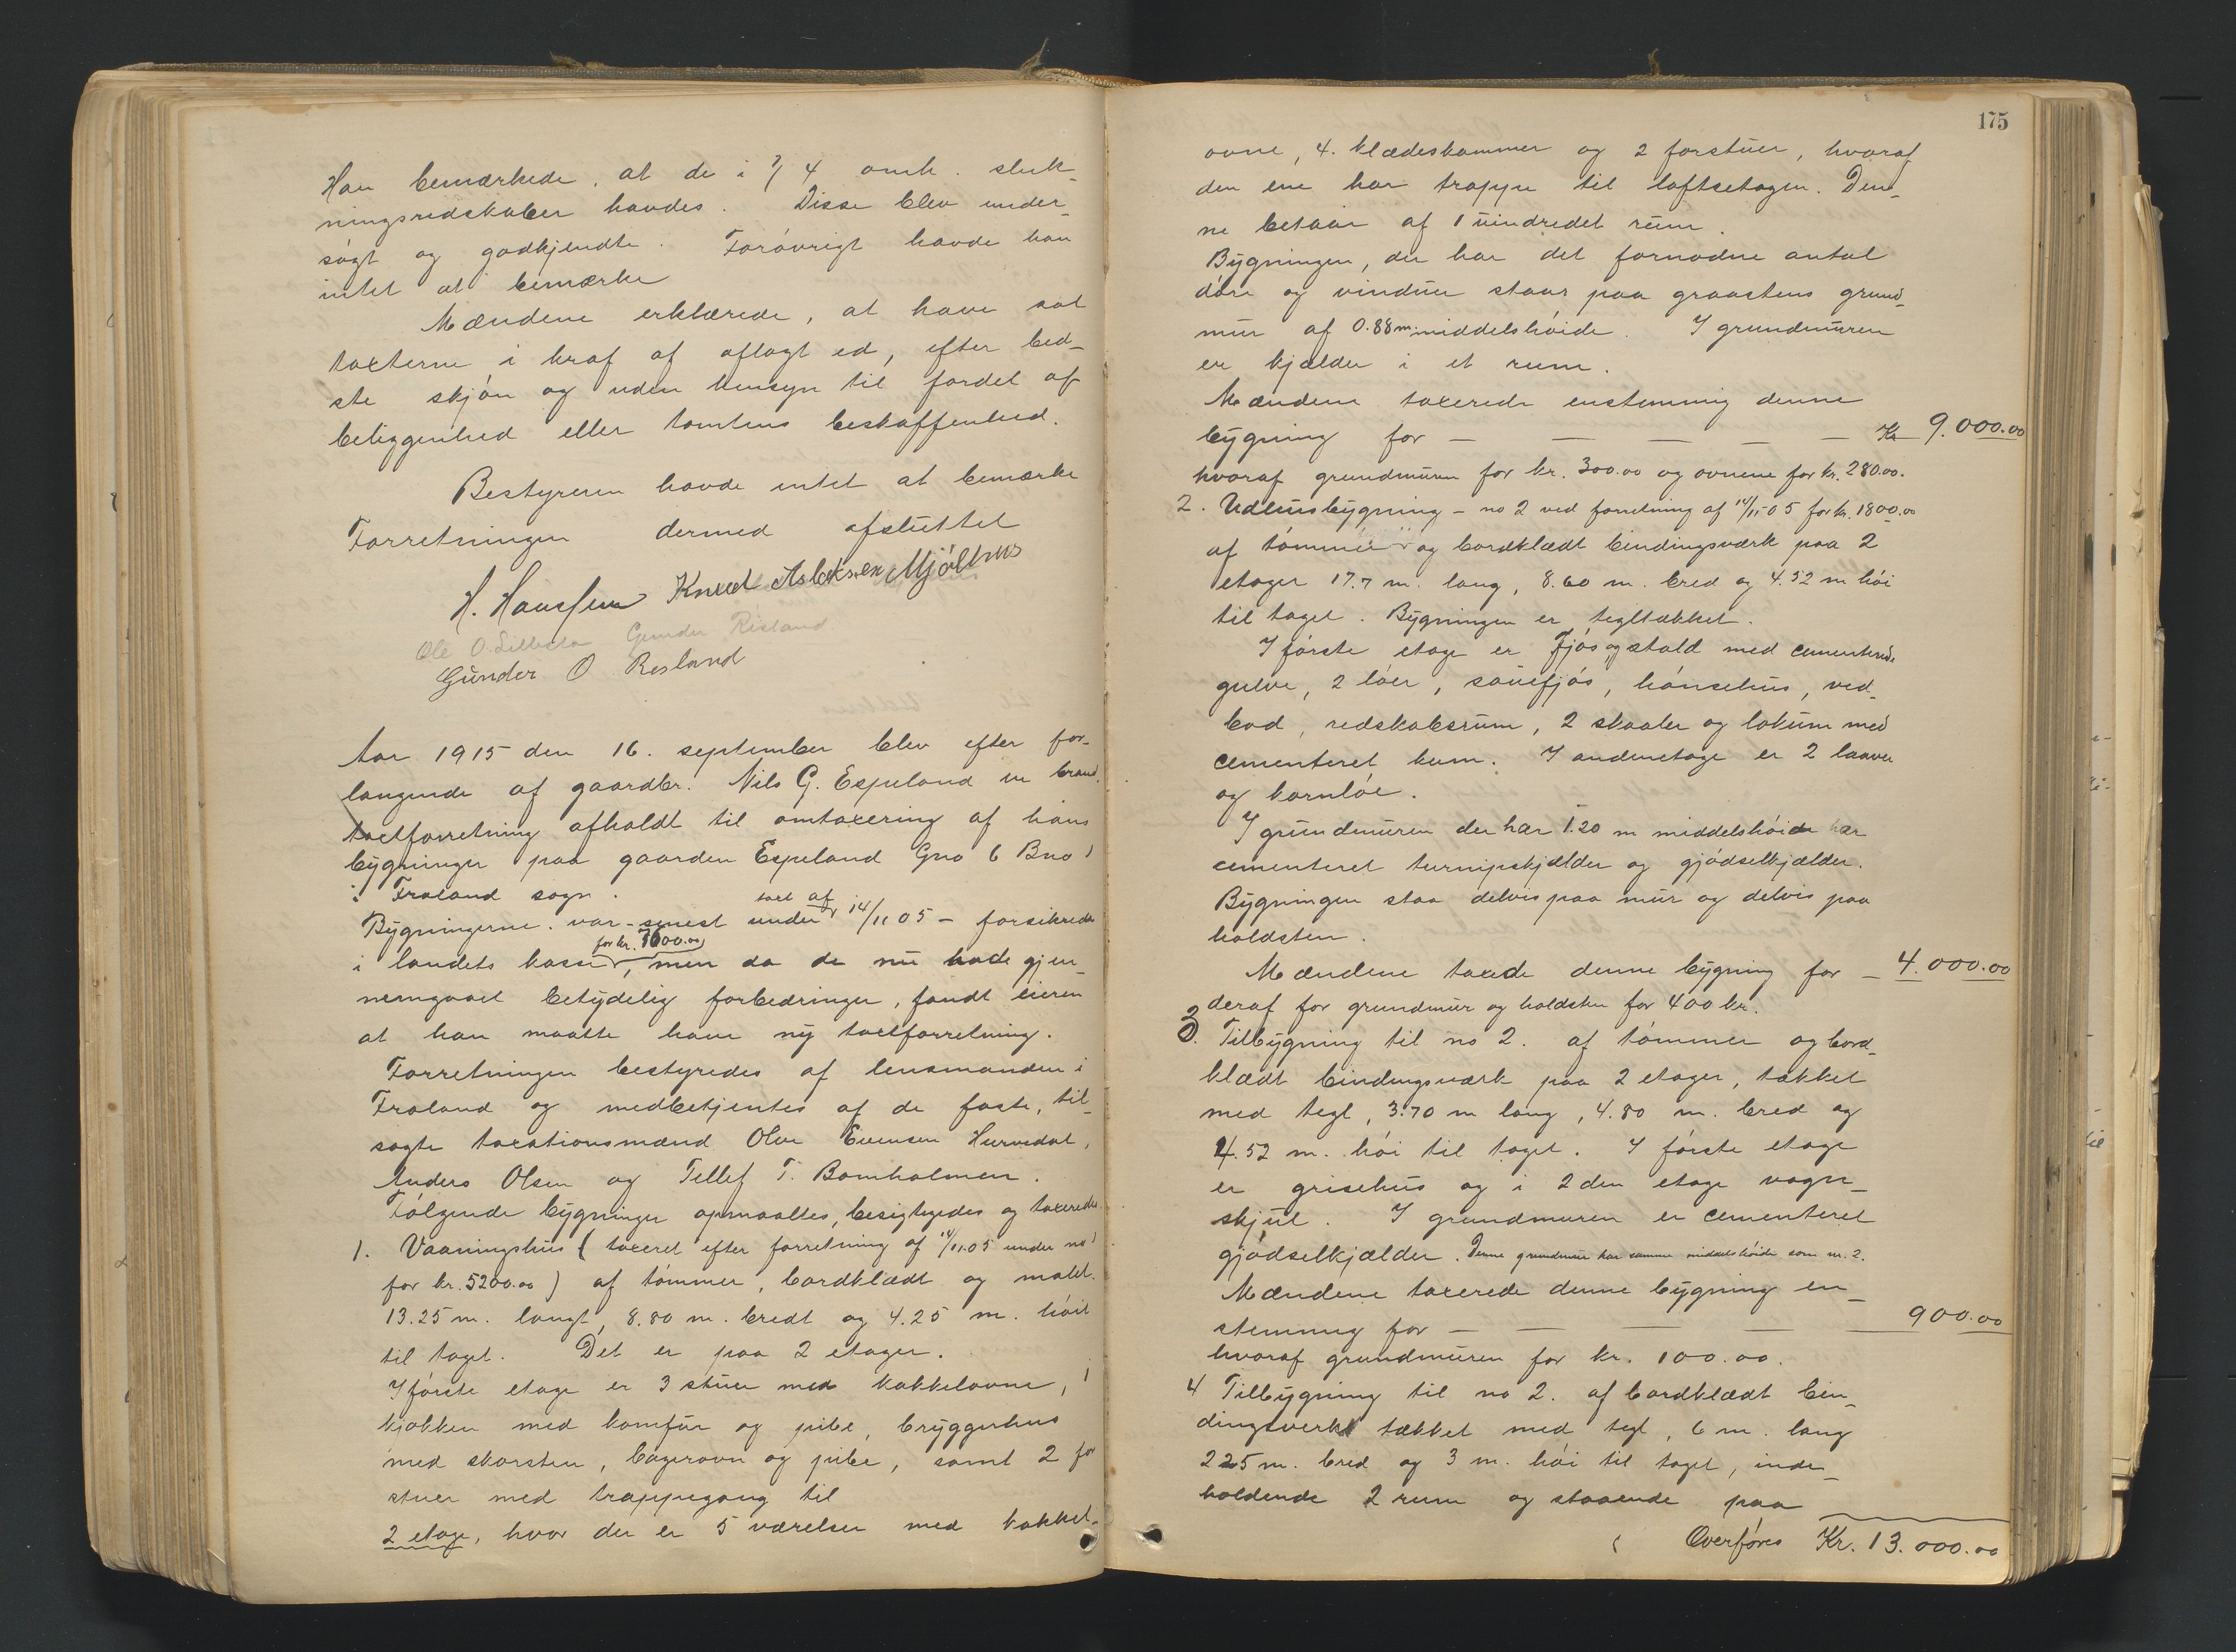 Han bemærkede, at de i § 4 omh. sluk-
ningsredskaber havdes. Disse blev under-
søgt og godkjendte. Forøvrigt havde han
intet at bemærke
Mændene erklærede, at have sat
taxterne i kraf af aflagt ed, efter bed-
ste skjøn og uden hensyn til fordel af
beliggenhed eller tomtens beskaffenhed.
Bestyreren havde intet at bemærke
Forretningen dermed afsluttet
H. Haussen Knud Aslaksen Mjölhus
Ole O. Gunder Risland
Gunder O Resland
Aar 1915 den 16. september blev efter for-
langende af gaardbr. Nils G. Espeland en brand-
taxtforretning afholdt til omtaxering af hans
bygninger paa gaarden Espeland Gno 6 Bno 1
i Froland sogn.
Bygningerne var senest under taxt af 14/11 05 – forsikrede
i landets kasse for kr. 7600.00, men da de nu hade gjen-
nemgaaet betydelig forbedringer, fandt eieren
at han maatte have ny taxtforretning.
Forretningen bestyredes af lensmanden i
Froland og medbetjentes af de faste, til-
sagte taxationsmænd Olve Evensen Hurvedal,
Anders Olsen og Tellef T. Bomholmen.
Følgende bygninger opmaaltes, besigtigedes og taxeredes
1. Vaaningshus (taxeret efter forretning af 14/11.05 under no 1
for kr. 5200.00) af tømmer, bordklædt og malet.
13.25 m. langt, 8.80 m. bredt og 4.25 m. høit
til taget. Det er paa 2 etager.
I første etage er 3 stuer med kakkelovne, 1
kjøkken med komfur og pibe, bryggerhus
med skorsten, bagerovn og pibe, samt 2 for
stuer med trappegang til
2 etage, hvor der er 5 værelser med kakkel-
175
ovne, 4. klædeskammer og 2 forstuer, hvoraf
den ene har trappe til loftsetagen. Den-
ne bestaar af 1 uindredet rum.
Bygningen, der har det fornødne antal
døre og vinduer staar paa graastens grund-
mur af 0.88 m. middelshøide. I grundmuren
er kjælder i et rum.
Mændene taxerede enstemmig denne
bygning for — — — — — Kr 9.000.00
hvoraf grundmuren for kr. 300.00 og ovnene for kr. 280.00.
2. Udhusbygning – no 2 ved forretning af 14/11-05 for kr. 1800.00
af tømmer og bordklædt bindingsværk paa 2
etager 17.7 m. lang, 8.60 m. bred og 4.52 m høi
til taget. Bygningen er tegltækket.
I første etage er Fjøs og stald med cementerede
gulve, 2 løer, sauefjøs, hønsehus, ved-
bod, redskabsrum, 2 skaaler og lokum med
cementeret kum. I andenetage er 2 laaver
og kornløe.
I grundmuren der har 1.20 m middelshøide har
cementeret turnipskjælder og gjødselkjælder.
Bygningen staa delvis paa mur og delvis paa
holdsten.
Mændene taxede denne bygning for — 4.000.00
deraf for grundmur og holdsten for 400 kr.
3. Tilbygning til no 2. af tømmer og bord-
klædt bindingsværk paa 2 etager, tækket
med tegl, 3.70 m lang, 4.80 m. bred og
4.52 m. høi til taget. I første etage
er grisehus og i 2den etage vogn-
skjul. I grundmuren er cementeret
gjødselkjælder. Denne grundmur har samme middelshøide som nr. 2.
Mændene taxerede denne bygning en-
stemmig for — — — — 900.00
hvoraf grundmuren for kr. 100.00.
4 Tilbygning til no 2. af bordklædt bin-
dingsverk tækket med tegl, 6 m. lang
2.25 m. bred og 3 m. høi til taget, inde-
holdende 2 rum og staaende paa
Overføres Kr. 13.000.00